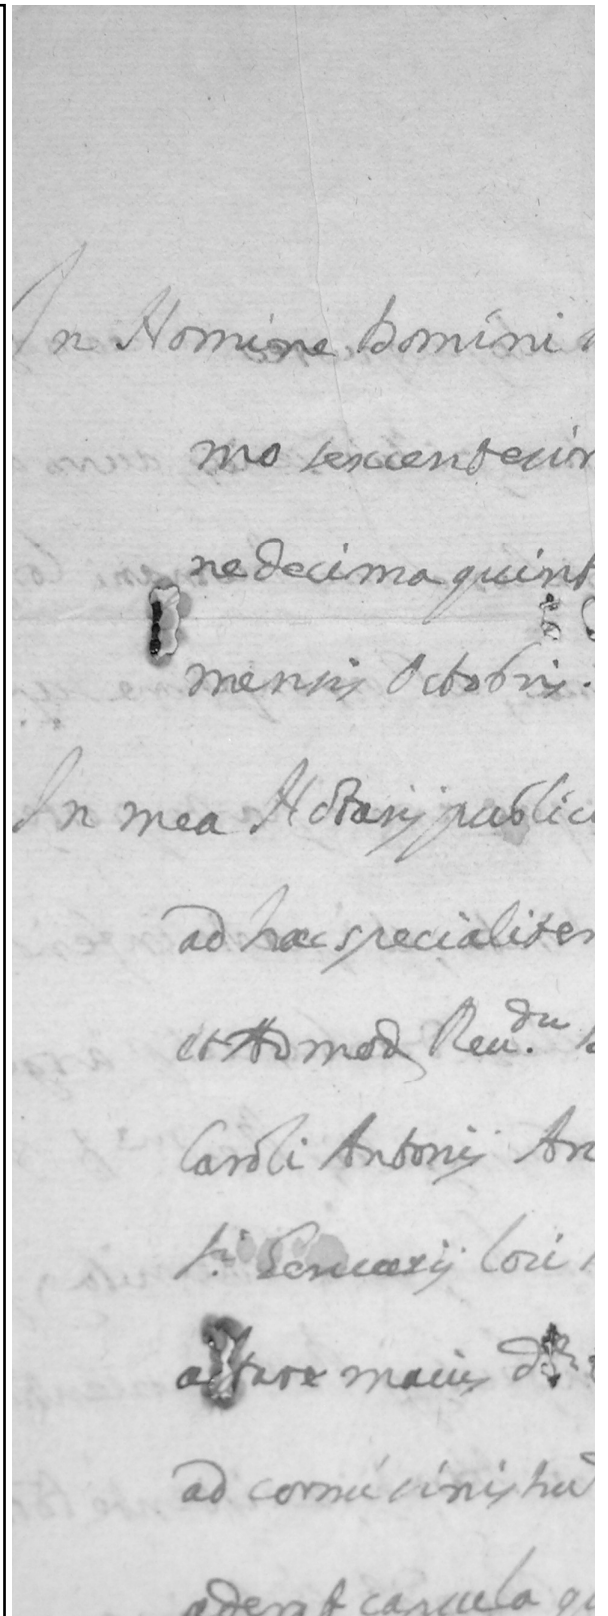 In Nomine Domini
mo sexcentesim
ne decima quint
mensis Octobris.
In mea Notarij public
ad hæc specialiter
et Ad mod Reu.du
Caroli Antonij An
sti Ianuarij loci
altare maius
ad cornu sinistrū
aderat capsula qu